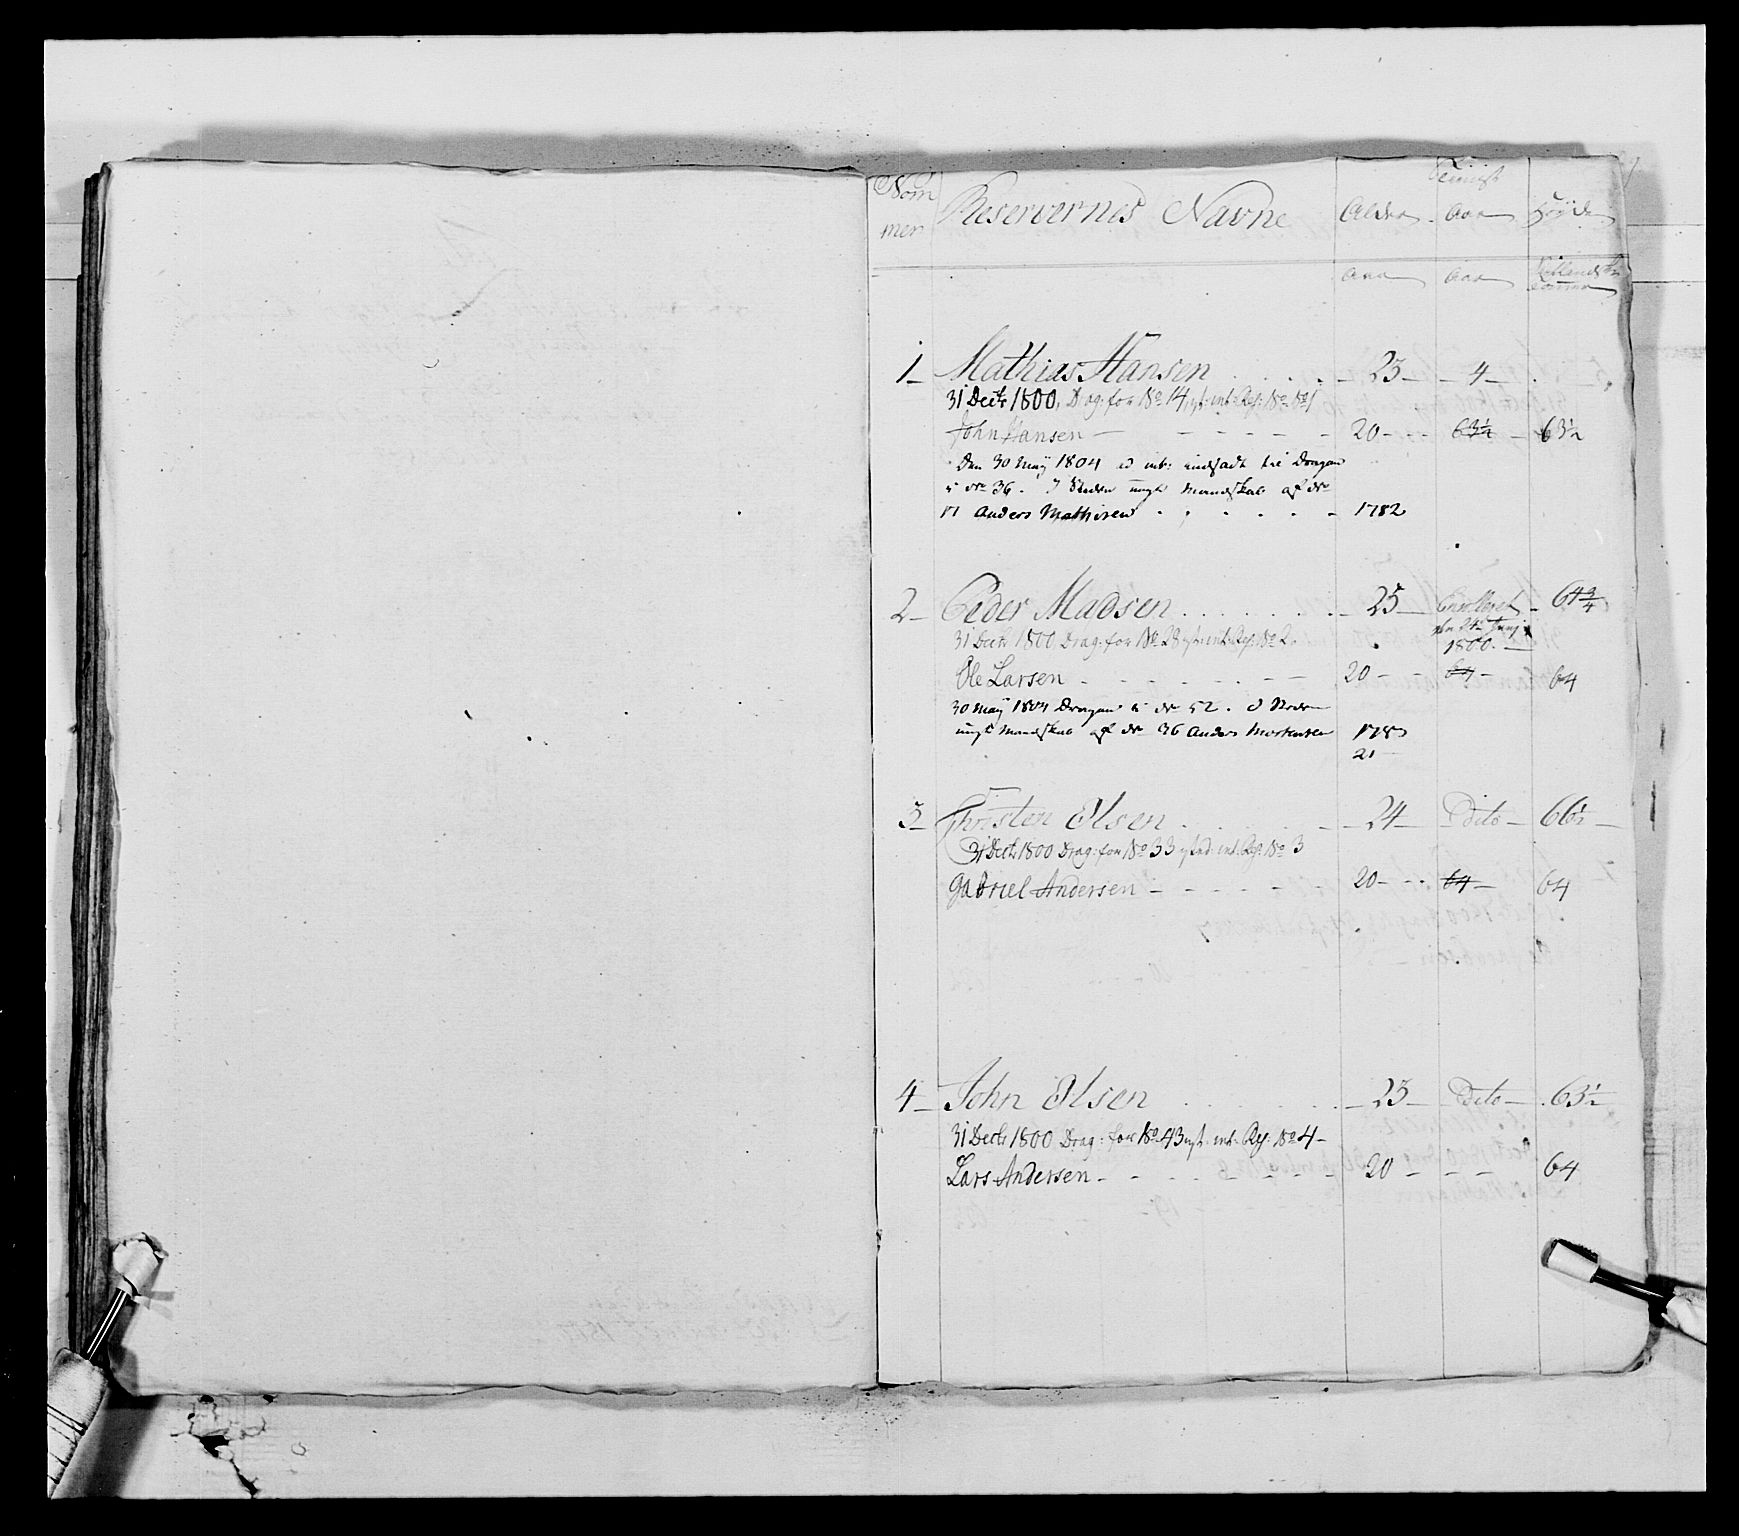 Nom
mer
Reservernes Navne
Alder
Tienist
Aar
Høyde
Aar
Aar
1
Mathias Hansen
23
4
31 Decbr 1800, Drag: for No 14, Res: No 1
John Hansen
20
63½
63½
Den 30 May 1804 indsadt Dragon
No 36. I Steden ungt Mandskab af No
17 Anders Mathisen
1782
2
Peder Madsen
25
Enrolleret
64¾
den 24 Junj
1800
31 Decbr 1800 Drag: for No 28 Res: No 2
Ole Larsen
20
64
64
30 May 1804 Dragon No 52. I Steden
ungt Mandskab af No 36 Anders Mortensen
178
21
3
Christen Olsen
24
Dito
66½
31 Decbr 1800 Drag: for No 33 Res: No 3
Gabriel Andersen
20
64
64
4
John Olsen
23
Dito
63½
31 Decbr 1800 Drag: for No 43 Res: No 4
Lars Andersen
20
64